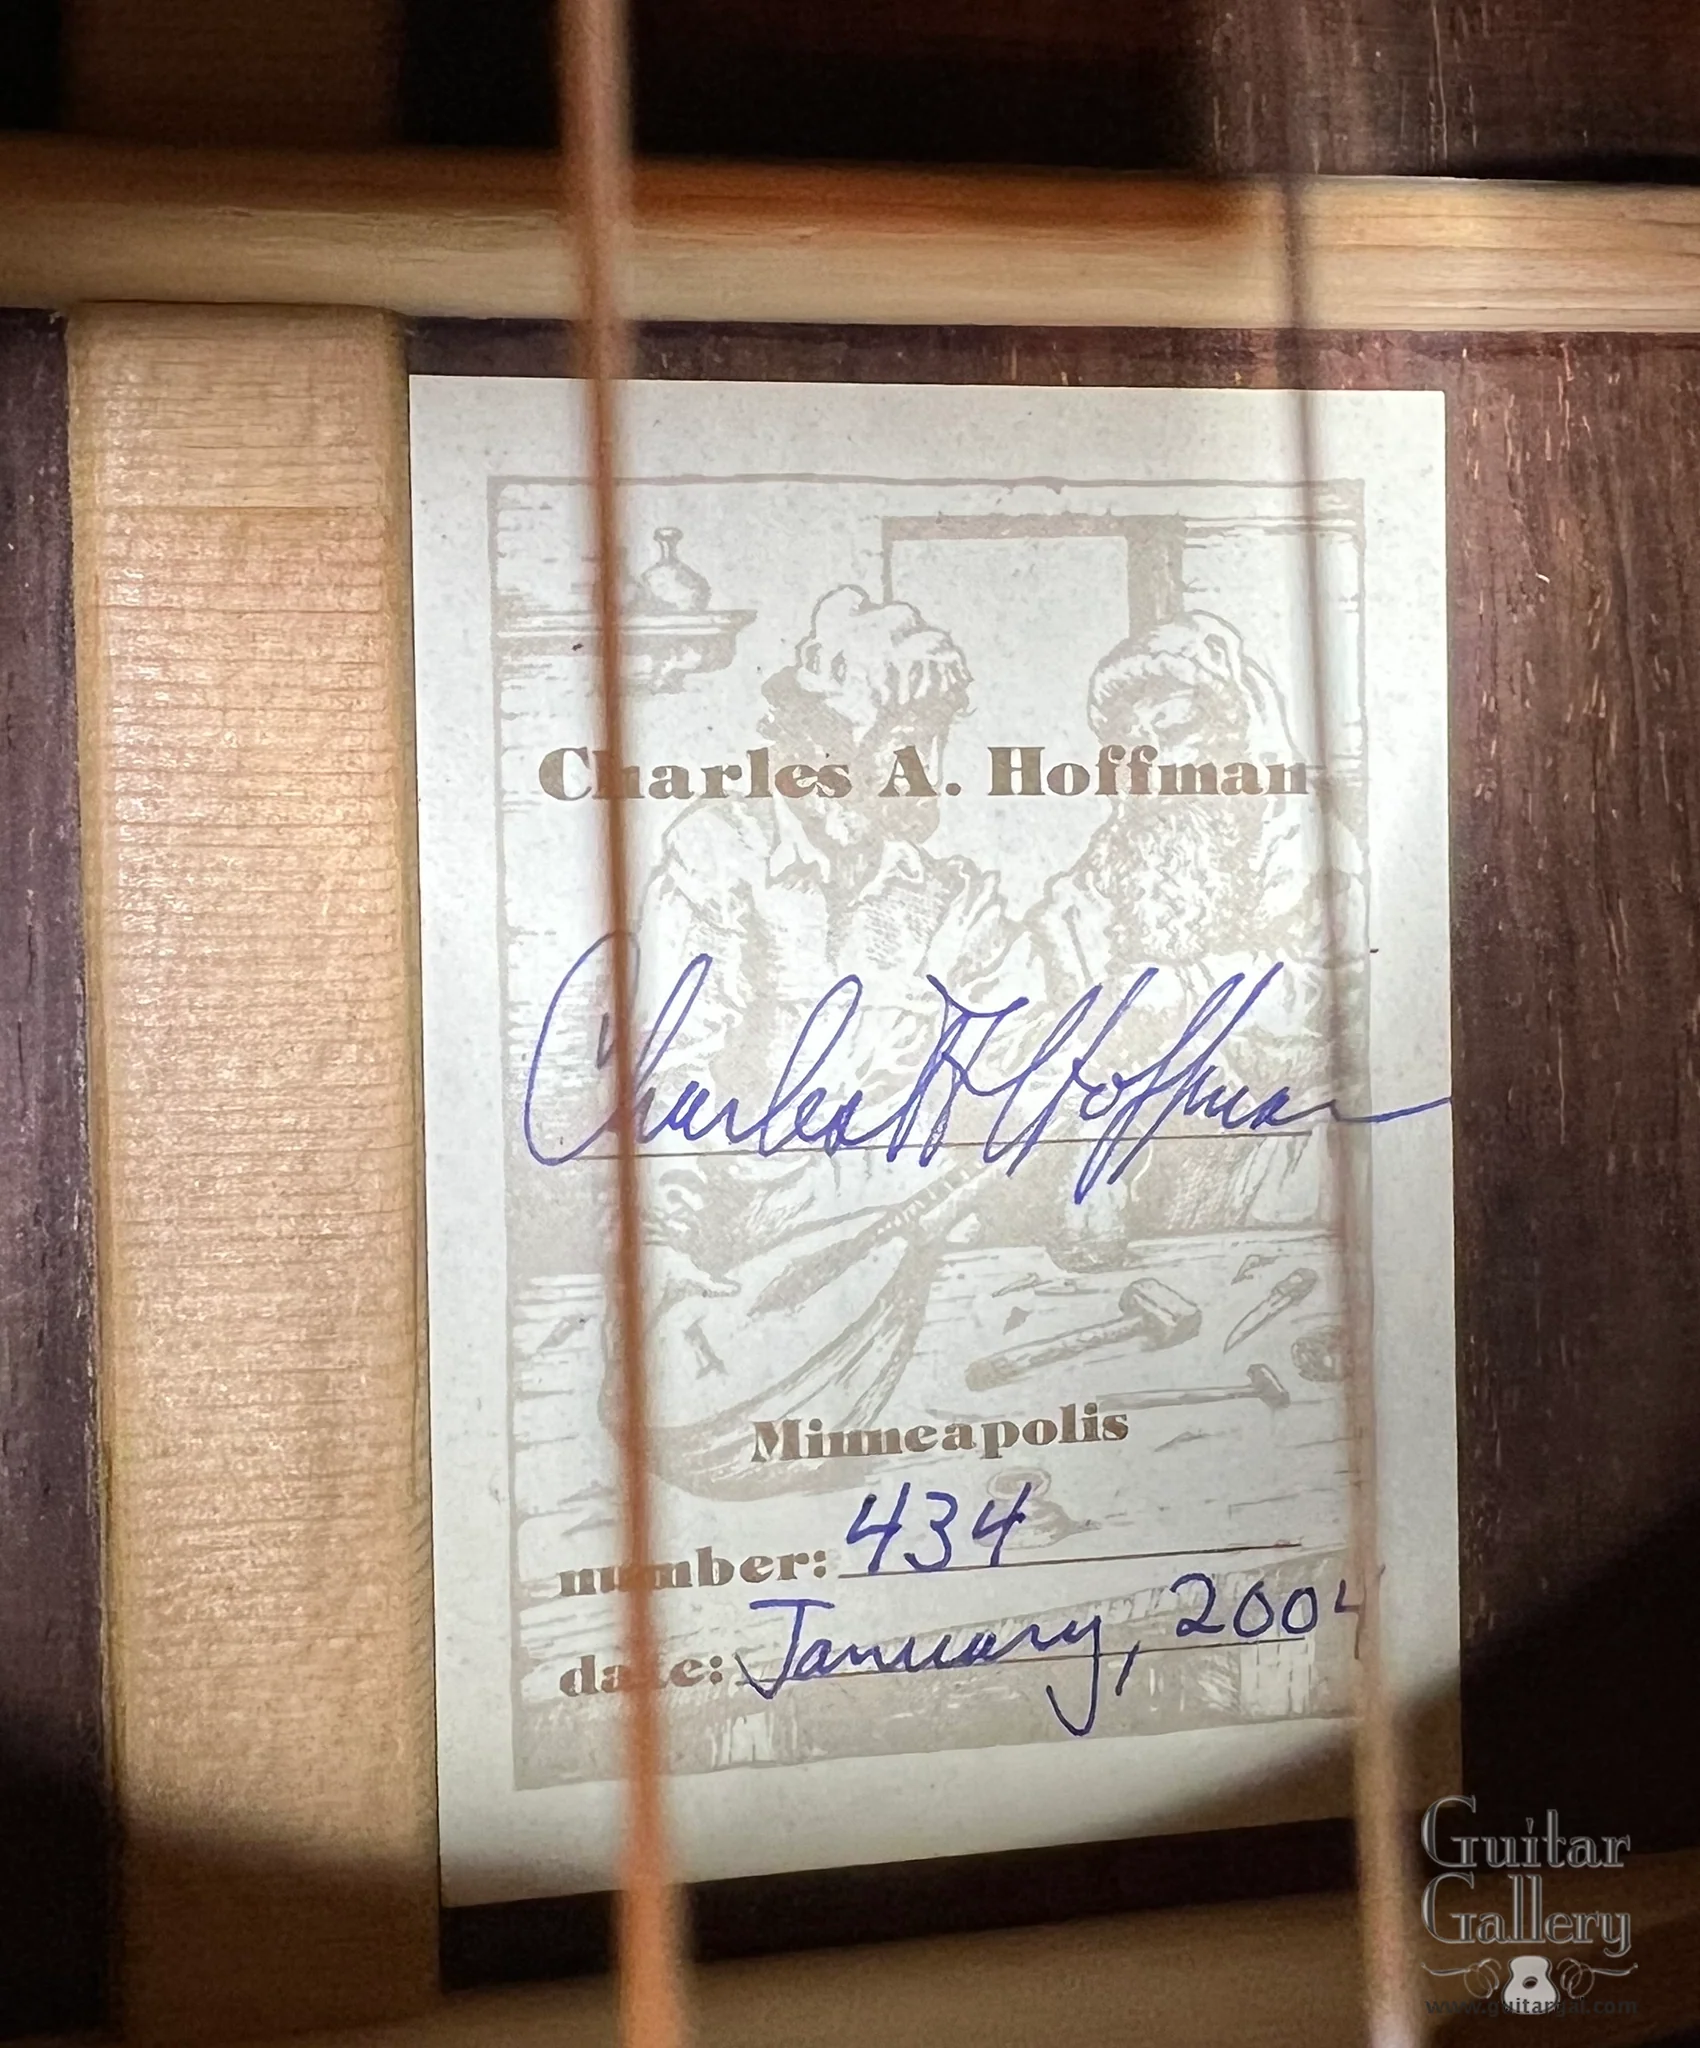 Charles A. Hoffman
Charles A Hoffman
Minneapolis
number: 434
date: January, 2004
Guitar
Gallery
www.guitargal.com